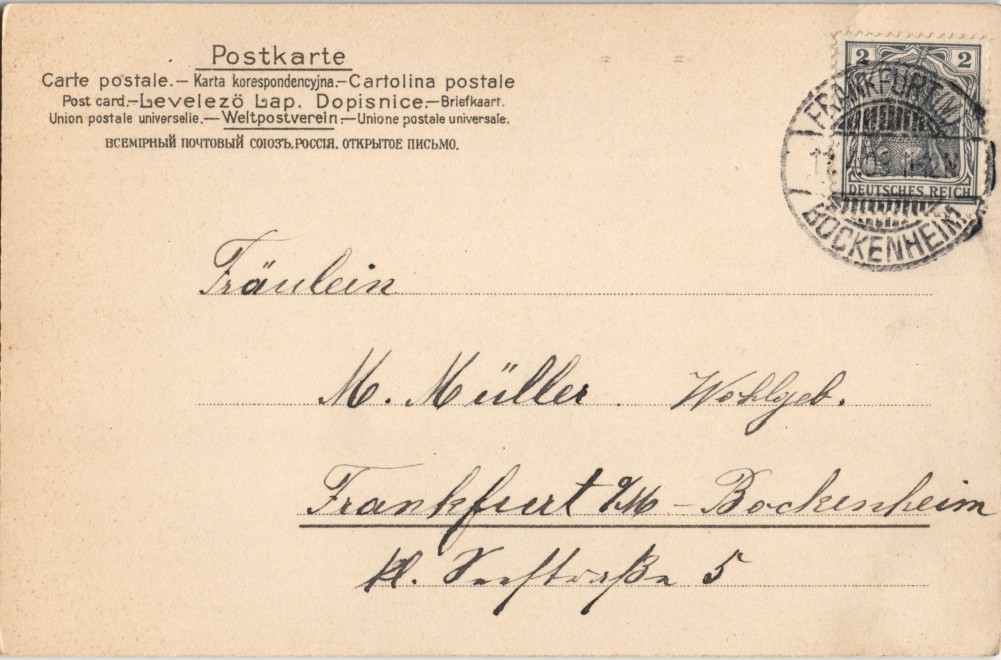 Postkarte
Carte postale.— Karta korespondencyjna.—Cartolina postale
Post card.—Levelező Lap. Dopisnice.—Briefkaart.
Union postale universelle.—Weltpostverein.—Unione postale universale.
ВСЕМІРНЫЙ ПОЧТОВЫЙ СОЮЗЪ.РОССІЯ. ОТКРЫТОЕ ПИСЬМО.
2 2
DEUTSCHES REICH
FRANKFURT (M.)
BOCKENHEIM
Fräulein
M. Müller. Wohlgeb.
Frankfurt a/M - Bockenheim
kl. Seestraße 5